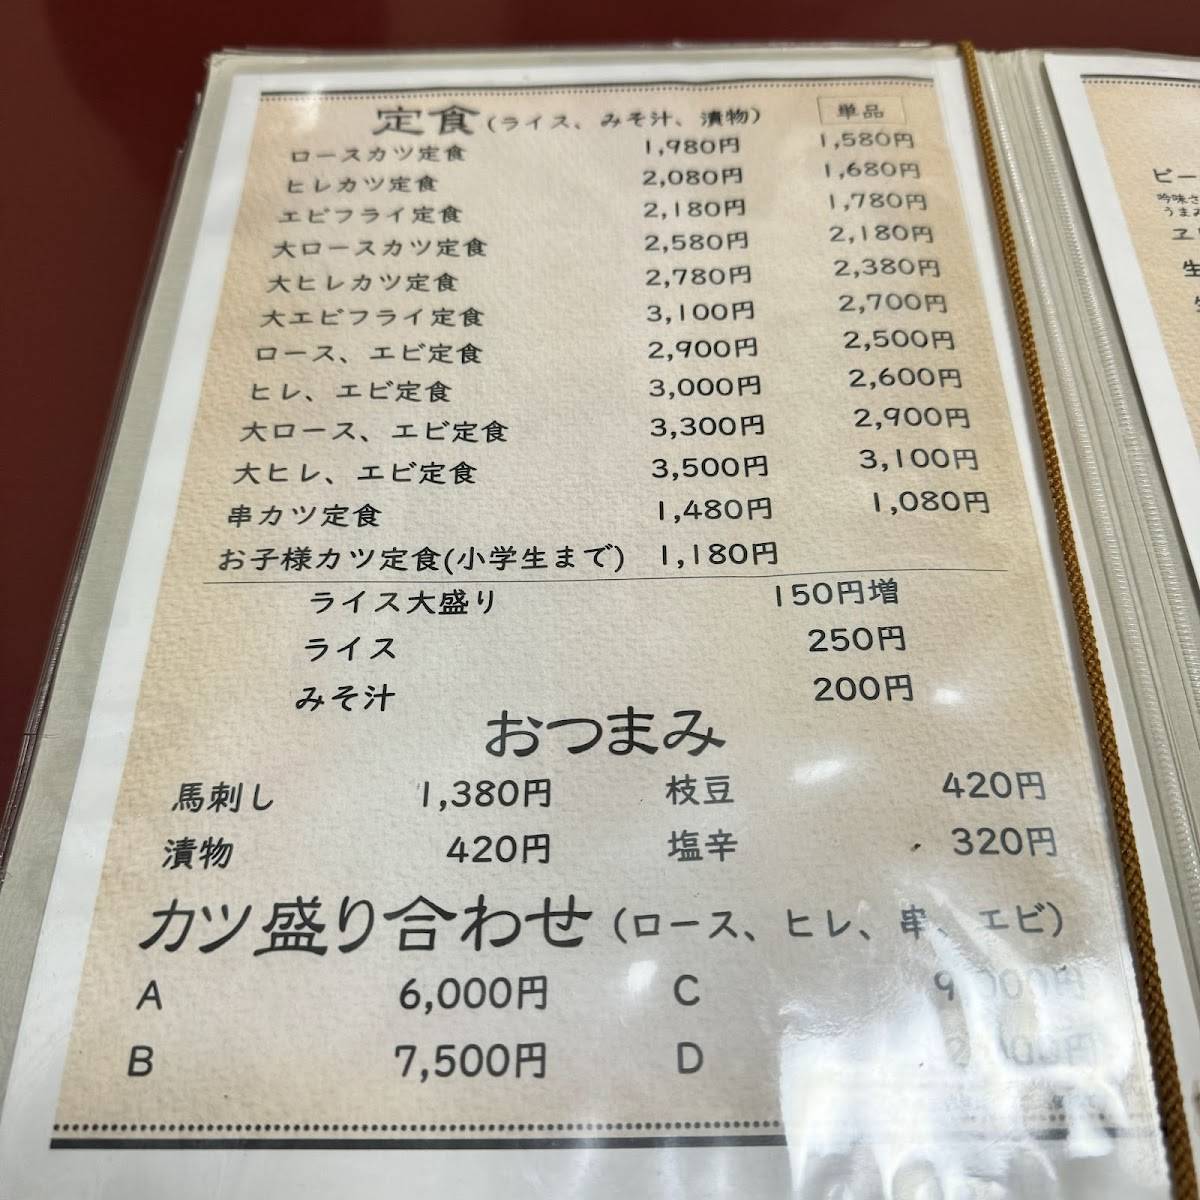 定食(ライス、みそ汁、漬物) 単品
ロースカツ定食 1,980円 1,580円
ヒレカツ定食 2,080円 1,680円
エビフライ定食 2,180円 1,780円
大ロースカツ定食 2,580円 2,180円
大ヒレカツ定食 2,780円 2,380円
大エビフライ定食 3,100円 2,700円
ロース、エビ定食 2,900円 2,500円
ヒレ、エビ定食 3,000円 2,600円
大ロース、エビ定食 3,300円 2,900円
大ヒレ、エビ定食 3,500円 3,100円
串カツ定食 1,480円 1,080円
お子様カツ定食(小学生まで) 1,180円
ライス大盛り 150円増
ライス 250円
みそ汁 200円
おつまみ
馬刺し 1,380円 枝豆 420円
漬物 420円 塩辛 320円
カツ盛り合わせ(ロース、ヒレ、串、エビ)
A 6,000円 C 9,000円
B 7,500円 D
ビー
吟味さ
うまみ
エ
生